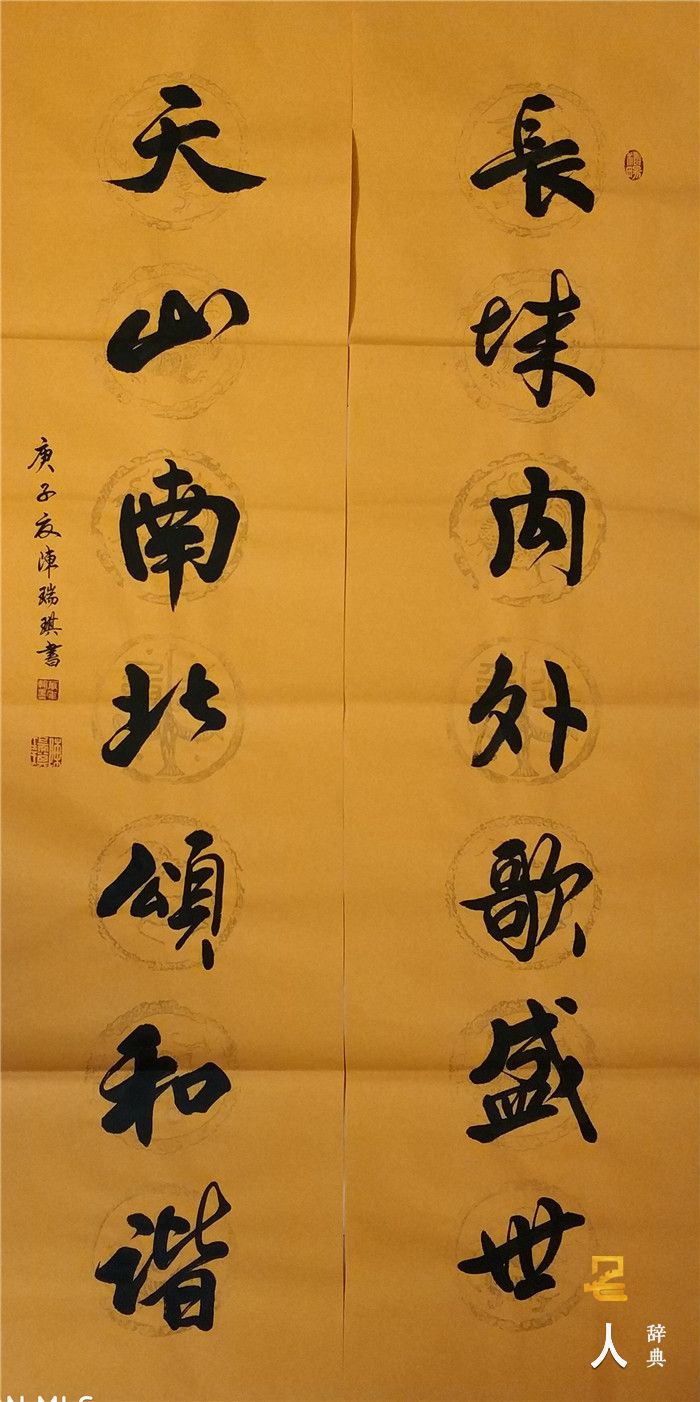 長城内外歌盛世
天山南北頌和谐
庚子夏陳瑞琪書
名人
辞典